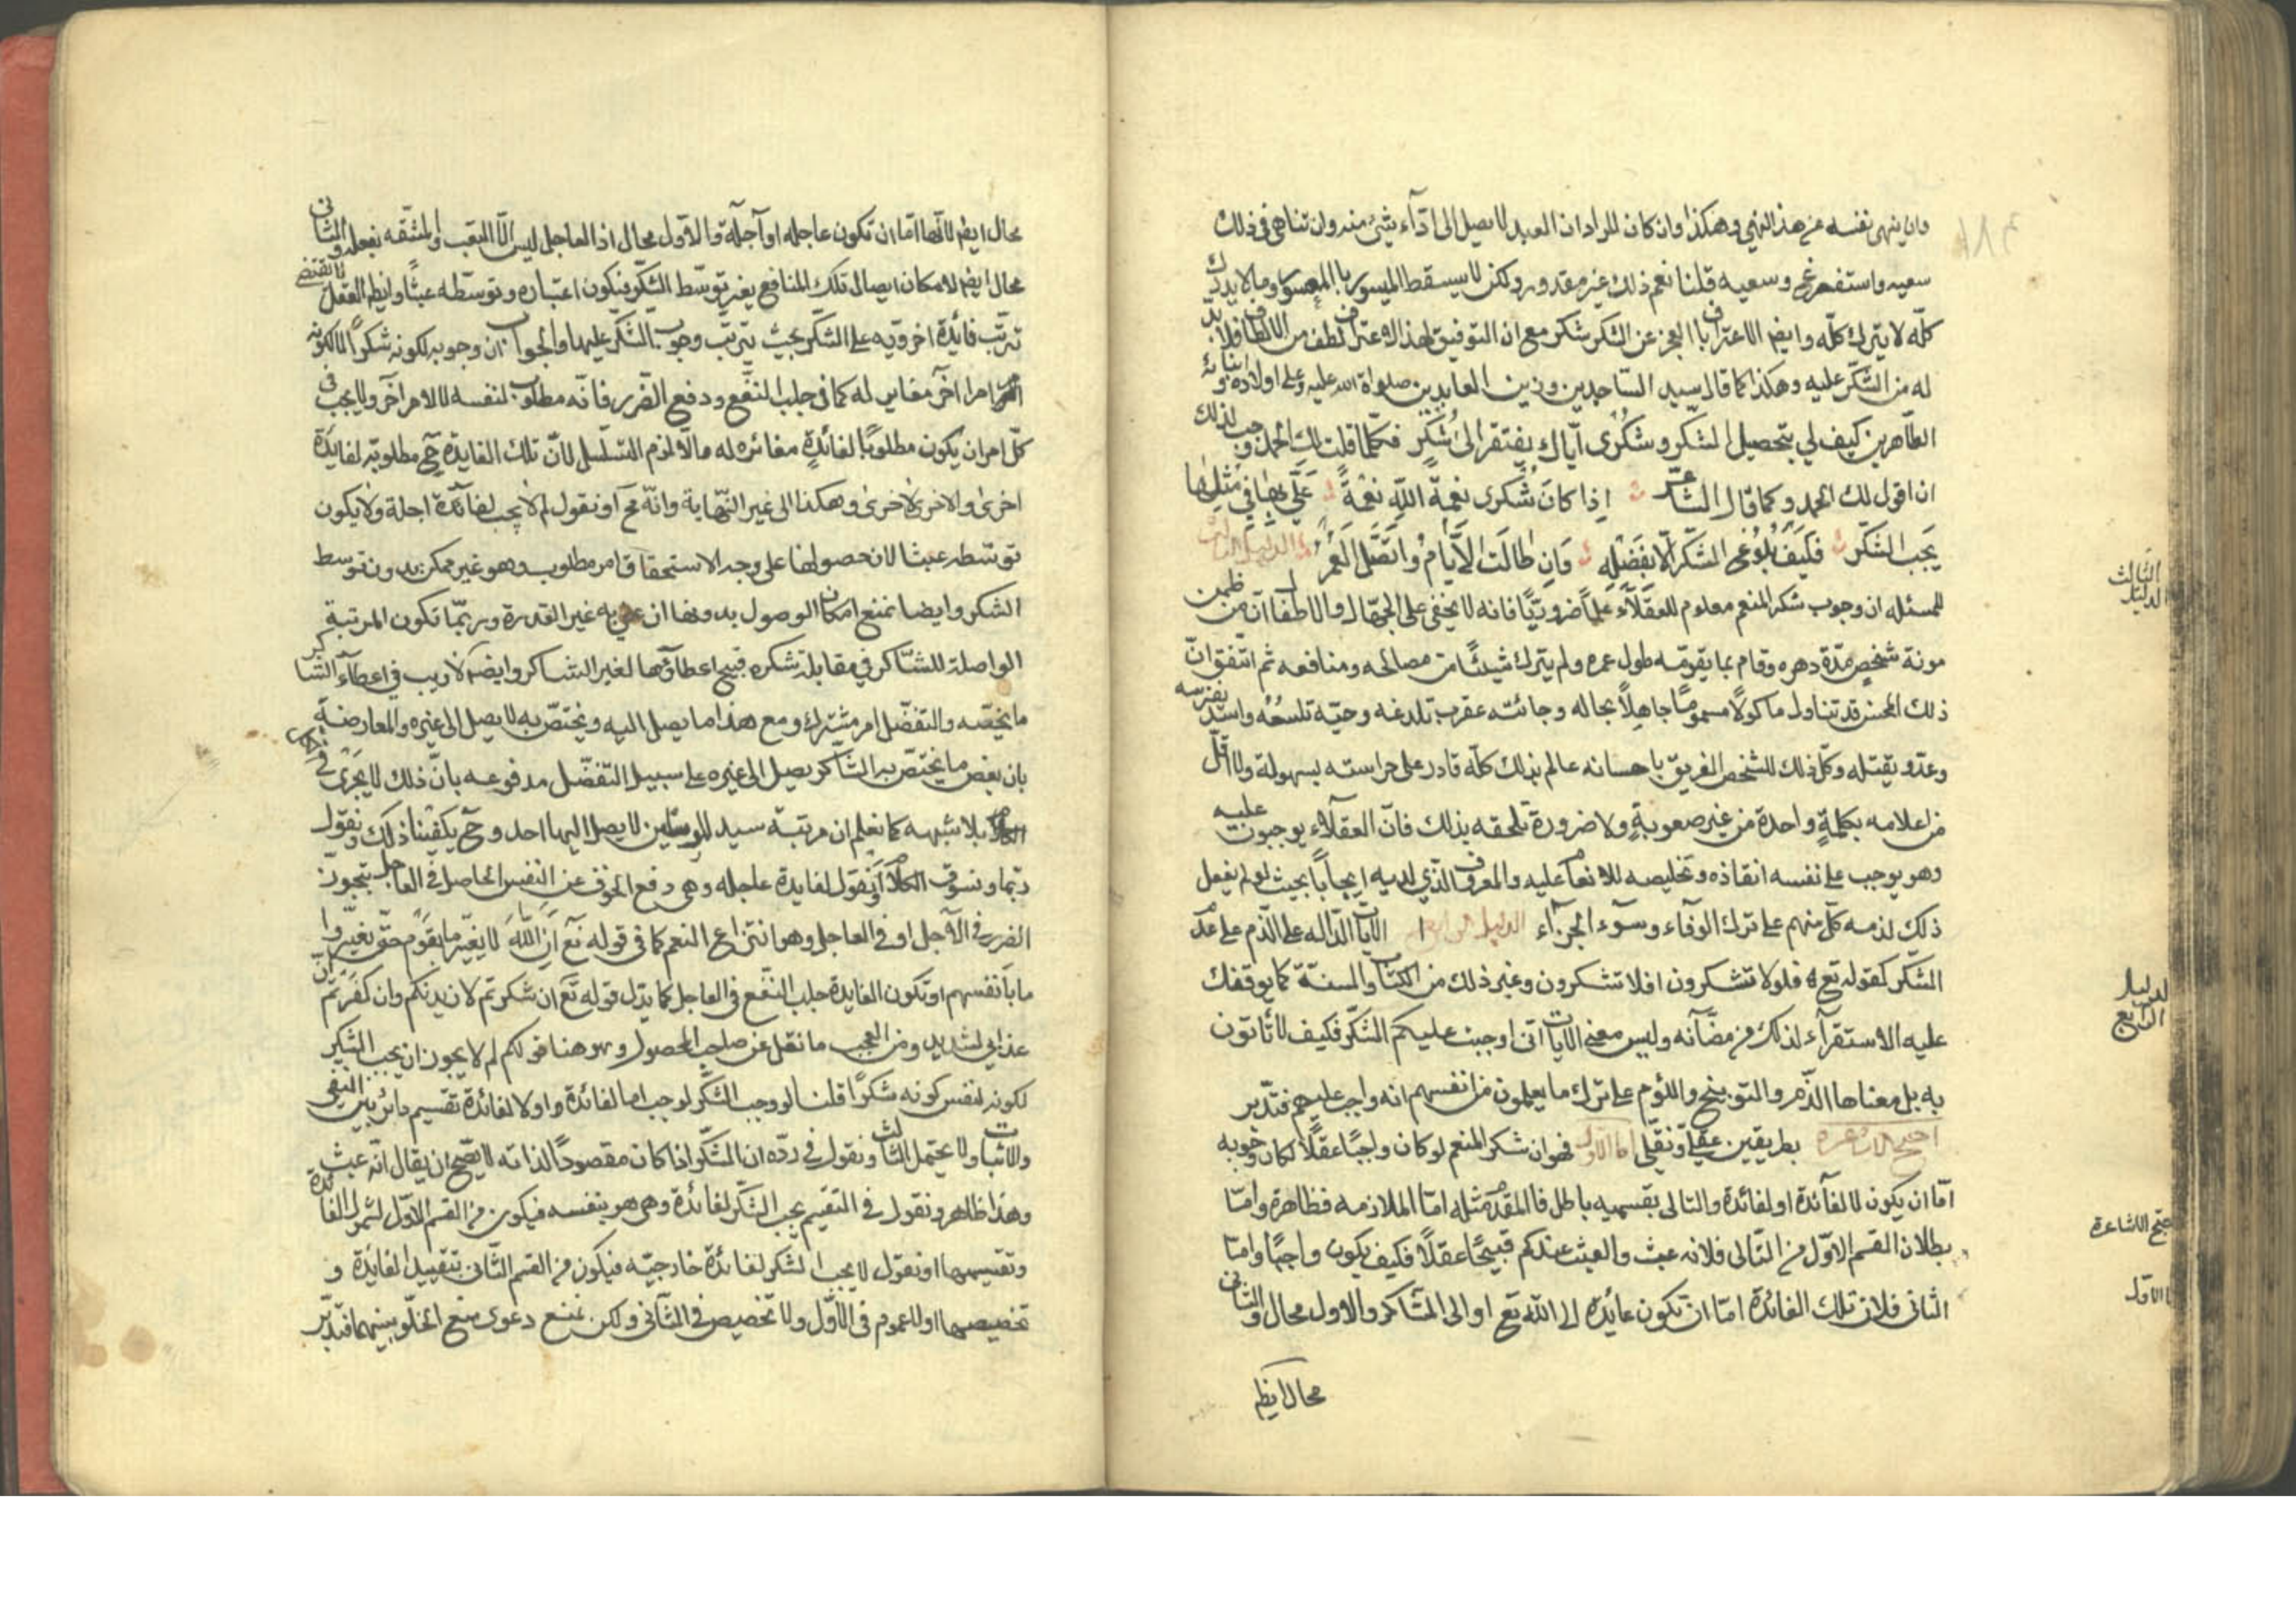 وان ينهى نفسه عن هذا النهي وهكذا وان كان المراد ان العبد لا يصل الى ادآء شئ منه ون تناهى في ذلك
سعيه واستفرغ وسعيه قلنا نعم ذلك غير مقدور ولكن لا يسقط الميسور بالمعسور وما لا يدرك
كلّه لا يترك كلّه وايضا الاعتراف با العجز عن الشكر شكر مع ان التوفيق لهذا الاعتراف لطف من الالطاف فلا بد
له من الشكّر عليه وهكذا كما قال سيد السّاجدين وزين العابدين صلواة الله عليه وعلى اولاده وابنائه
الطّاهرين كيف لي بتحصيل الشكّر وشكرى ايّاك يفتقر الى شكر فكلّما قلت لك الحمد وجب لذلك
ان اقول لك الحمد وكما قال الشاعر اِذا كانَ شُكرى نعمةَ اللّٰهِ نعْمةً عَلَّى بهٰا في مثلها
يَجب الشكّر فكيَفَ بُلوُغى الشكّر الّا بفَضْلِهِ وَانِ طالَت الاَيّامُ وَاتصَّل العُمرُ الدليل الثالث
للمسئله ان وجوب شكر المنعم معلوم للعقلآء علماً ضروريًّا فانه لا يخفى على الجهّال والاطفال ان من
مونة شخصٍ مدّة دهره وقام بما يقوّمه طول عمره ولم يترك شيئًا من مصالحه ومنافعه ثم اتّفق انّ
ذلك المحسن قد تناول ماكولاً مسمومًا جاهلاً بحاله وجائته عقرب تلدغه وحيّه تلسعُه واسد يفترسه
وعدّو يقتله وكلّ ذلك للشخص الغريق باحسانه عالم بذلك كلّه قادر على حراسته بسهولة ولا اقلّ
من اعلامه بكلمةٍ واحدة من غير صعوبةٍ ولا ضرورة تلحقه بذلك فانّ العقلآء يوجبون عليه
وهو يوجب على نفسه انقاذه وتخليصه للانعام عليه والمعروف الذّي لديه ايجابًا بحيث لو لم يفعل
ذلك لذمه كلّ منهم على ترك الوفآء وسوٓء الجزآء الدليل الرابع الايات الدّاله على الذّم على عدم
الشكر كقوله تع فلولا تشكرون افلا تشكرون وغير ذلك من الكتاب والسنة كما يوقفك
عليه الاستقرآء لذلك من مضآنه وليس معنى الايات انى اوجبت عليكم الشكّر فكيف لا تأتون
به بل معناها الذّم والتوبيخ واللؤم على ترك ما يعلمون من انفسهم انه واجب عليهم فتدّبر
احتج الاشاعره بطريقين عقلي ونقلي اما الاول فهوان شكر المنعم لو كان واجبًا عقلاً لكان وجوبه
امّا ان يكون لا لفآئدة او لفائدة والتالى بقسميه باطل فالمقدم مثله امّا الملازمه فظاهرة وامّا
بطلان القسم الاوّل من التّالى فلانه عبث والعبث عندكم قبيحًا عقلاً فكيف يكون واجبًا وامّا
الثانى فلان تلك الفائدة امّا ان تكون عائدة الى الله تع او الى الشّاكر والاول محال والثانى
محال ايظم
الدليل الثالث
الدليل الرابع
احتج الاشاعرة
اما الاوّل
محال ايضا لانّها امّا ان تكون عاجله او آجلة والاوّل محال اذ العاجل ليس الّا التعب والمشقّه بفعله والثانى
محال ايضا لامكان ايصال تلك المنافع بغير توسّط الشكّر فيكون اعتباره وتوسّطه عبثًا وايضا العقل لا يقتضى
ترتّب فائدة اخرويّه على الشكّر بحيث يترتّب وجوب الشكّر عليها والجواب ان وجوبه لكونه شكرًا لا لكونه
امرا آخر مغاير له كما فى جلب النفّع ودفع الضّرر فانّه مطلوب لنفسه لا لامر آخر ولا يجب فى
كلّ امر ان يكون مطلوبًا لفائدةٍ مغائره له والّا لزم التسلسل لانّ تلك الفايدة ح مطلوبّه لفايدة
اخرىٰ والاخرىٰ لاخرىٰ وهكذا الى غير النّهاية وانّه مح او نقول لم لا يجب لفائدة اجلة ولا يكون
توسّطه عبثا لان حصولها على وجه الاستحقاق امر مطلوب وهو غير ممكن بدون توسط
الشكر وايضا نمنع امكان الوصول بدونها ان به غير القدرة وربمّا تكون المرتبة
الواصلة للشّاكر في مقابلة شكره قبيح اعطاؤها لغير الشاكر وايضا لا ريب فى اعطآء الشاكر
ما يخصّه والتفضّل امر مشترك ومع هذا ما يصل اليه ويختصّ به لا يصل الى غيره والمعارضة
بان بعض ما يختصّ به الشّاكر يصل الى غيره على سبيل التفضّل مدفوعه بانّ ذلك لا يَجْرى فى
الكل بلا شبهه كما نعلم ان مرتبة سيد المرسلين لا يصل اليها احد وح يكفينا ذلك ونقول
ربّما ونسوق الكلام او نقول لفايدة عاجله وهى دفع الخوف عن النفس الحاصل فى العاجل بتجويز
الضرر فى الآجل او فى العاجل وهو انتزاع النعم كما فى قوله تع اِنّ اللّٰهَ لا يغيّر ما بقَومٍ حتّى يغيّروا
ما بأنفسهم او تكون الفايدة جلب النفّع فى العاجل كما يدّل قوله تع ان شكرتم لازيدنكم وان كفرتم ان
عذابي لشديد ومن العجب ما نقل عن صاحب المحصول وهو هنا قولكم لم لا يجوز ان يجب الشكر
لكونه لنفس كونه شكرًا قلنا لو وجب الشكّر لوجب اما لفائدة واو لا لفائدة تقسيم دائر بين النفى
والاثبات ولا يحتمل الثالث ونقول فى ردّه ان الشكّر اذا كان مقصودًا لذاته لا يصّح ان يقال انّه عبث
وهذا ظاهر ونقول فى التقسيم يجب الشكّر لفائدة وهى هو بنفسه فيكون من القسم الاوّل لشمول الفائدة
وتقسيمها او نقول لا يجب الشكر لفائدة خارجيّه فيكون من القسم الثّانى بتقييد الفايدة و
تخصيصها او لا عموم فى الاوّل ولا تخصيص فى الثّانى ولكن نمنع دعوى منع الخلّو بينهما فتدّبر